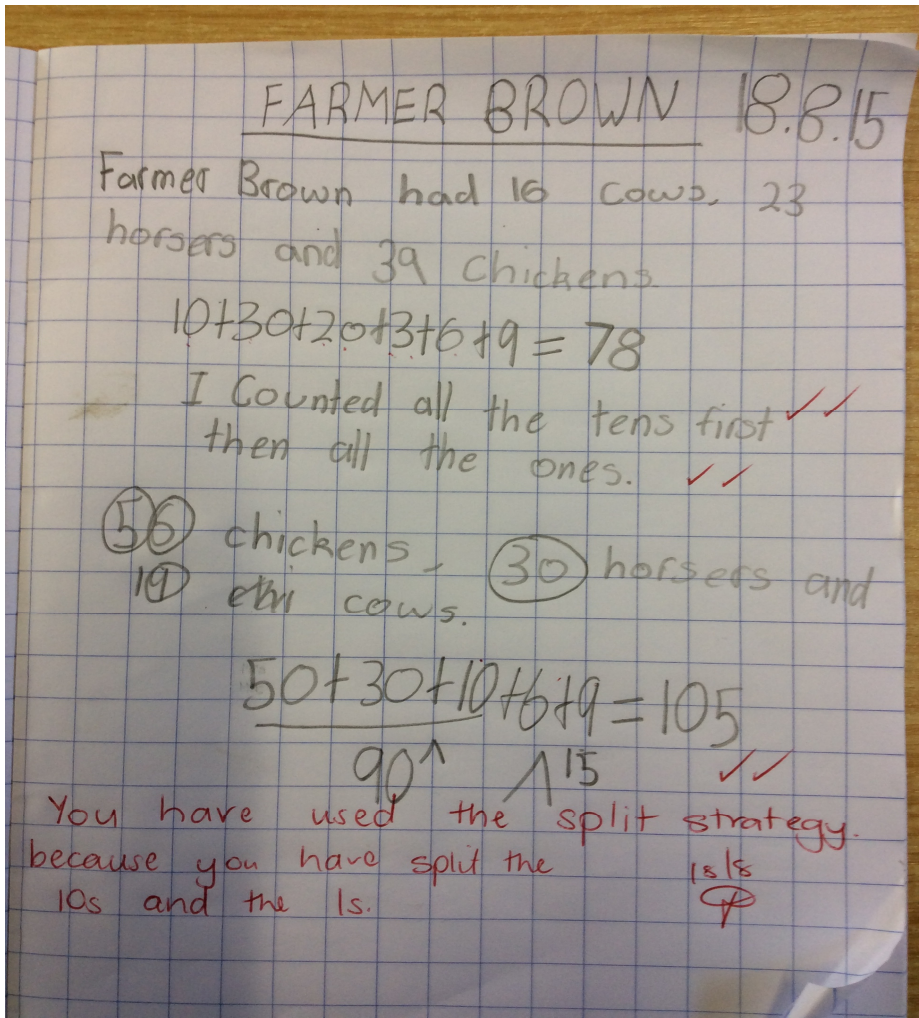 FARMER BROWN 18.8.15
Farmer Brown had 16 cows, 23
horsers and 39 Chickens
10+30+20+3+6+9=78
I Counted all the tens first
then all the ones.
56 chickens, 30 horsers and
19 cows.
50+30+10+6+9=105
90^ ^15
You have used the split strategy.
because you have split the 18/8
10s and the 1s.